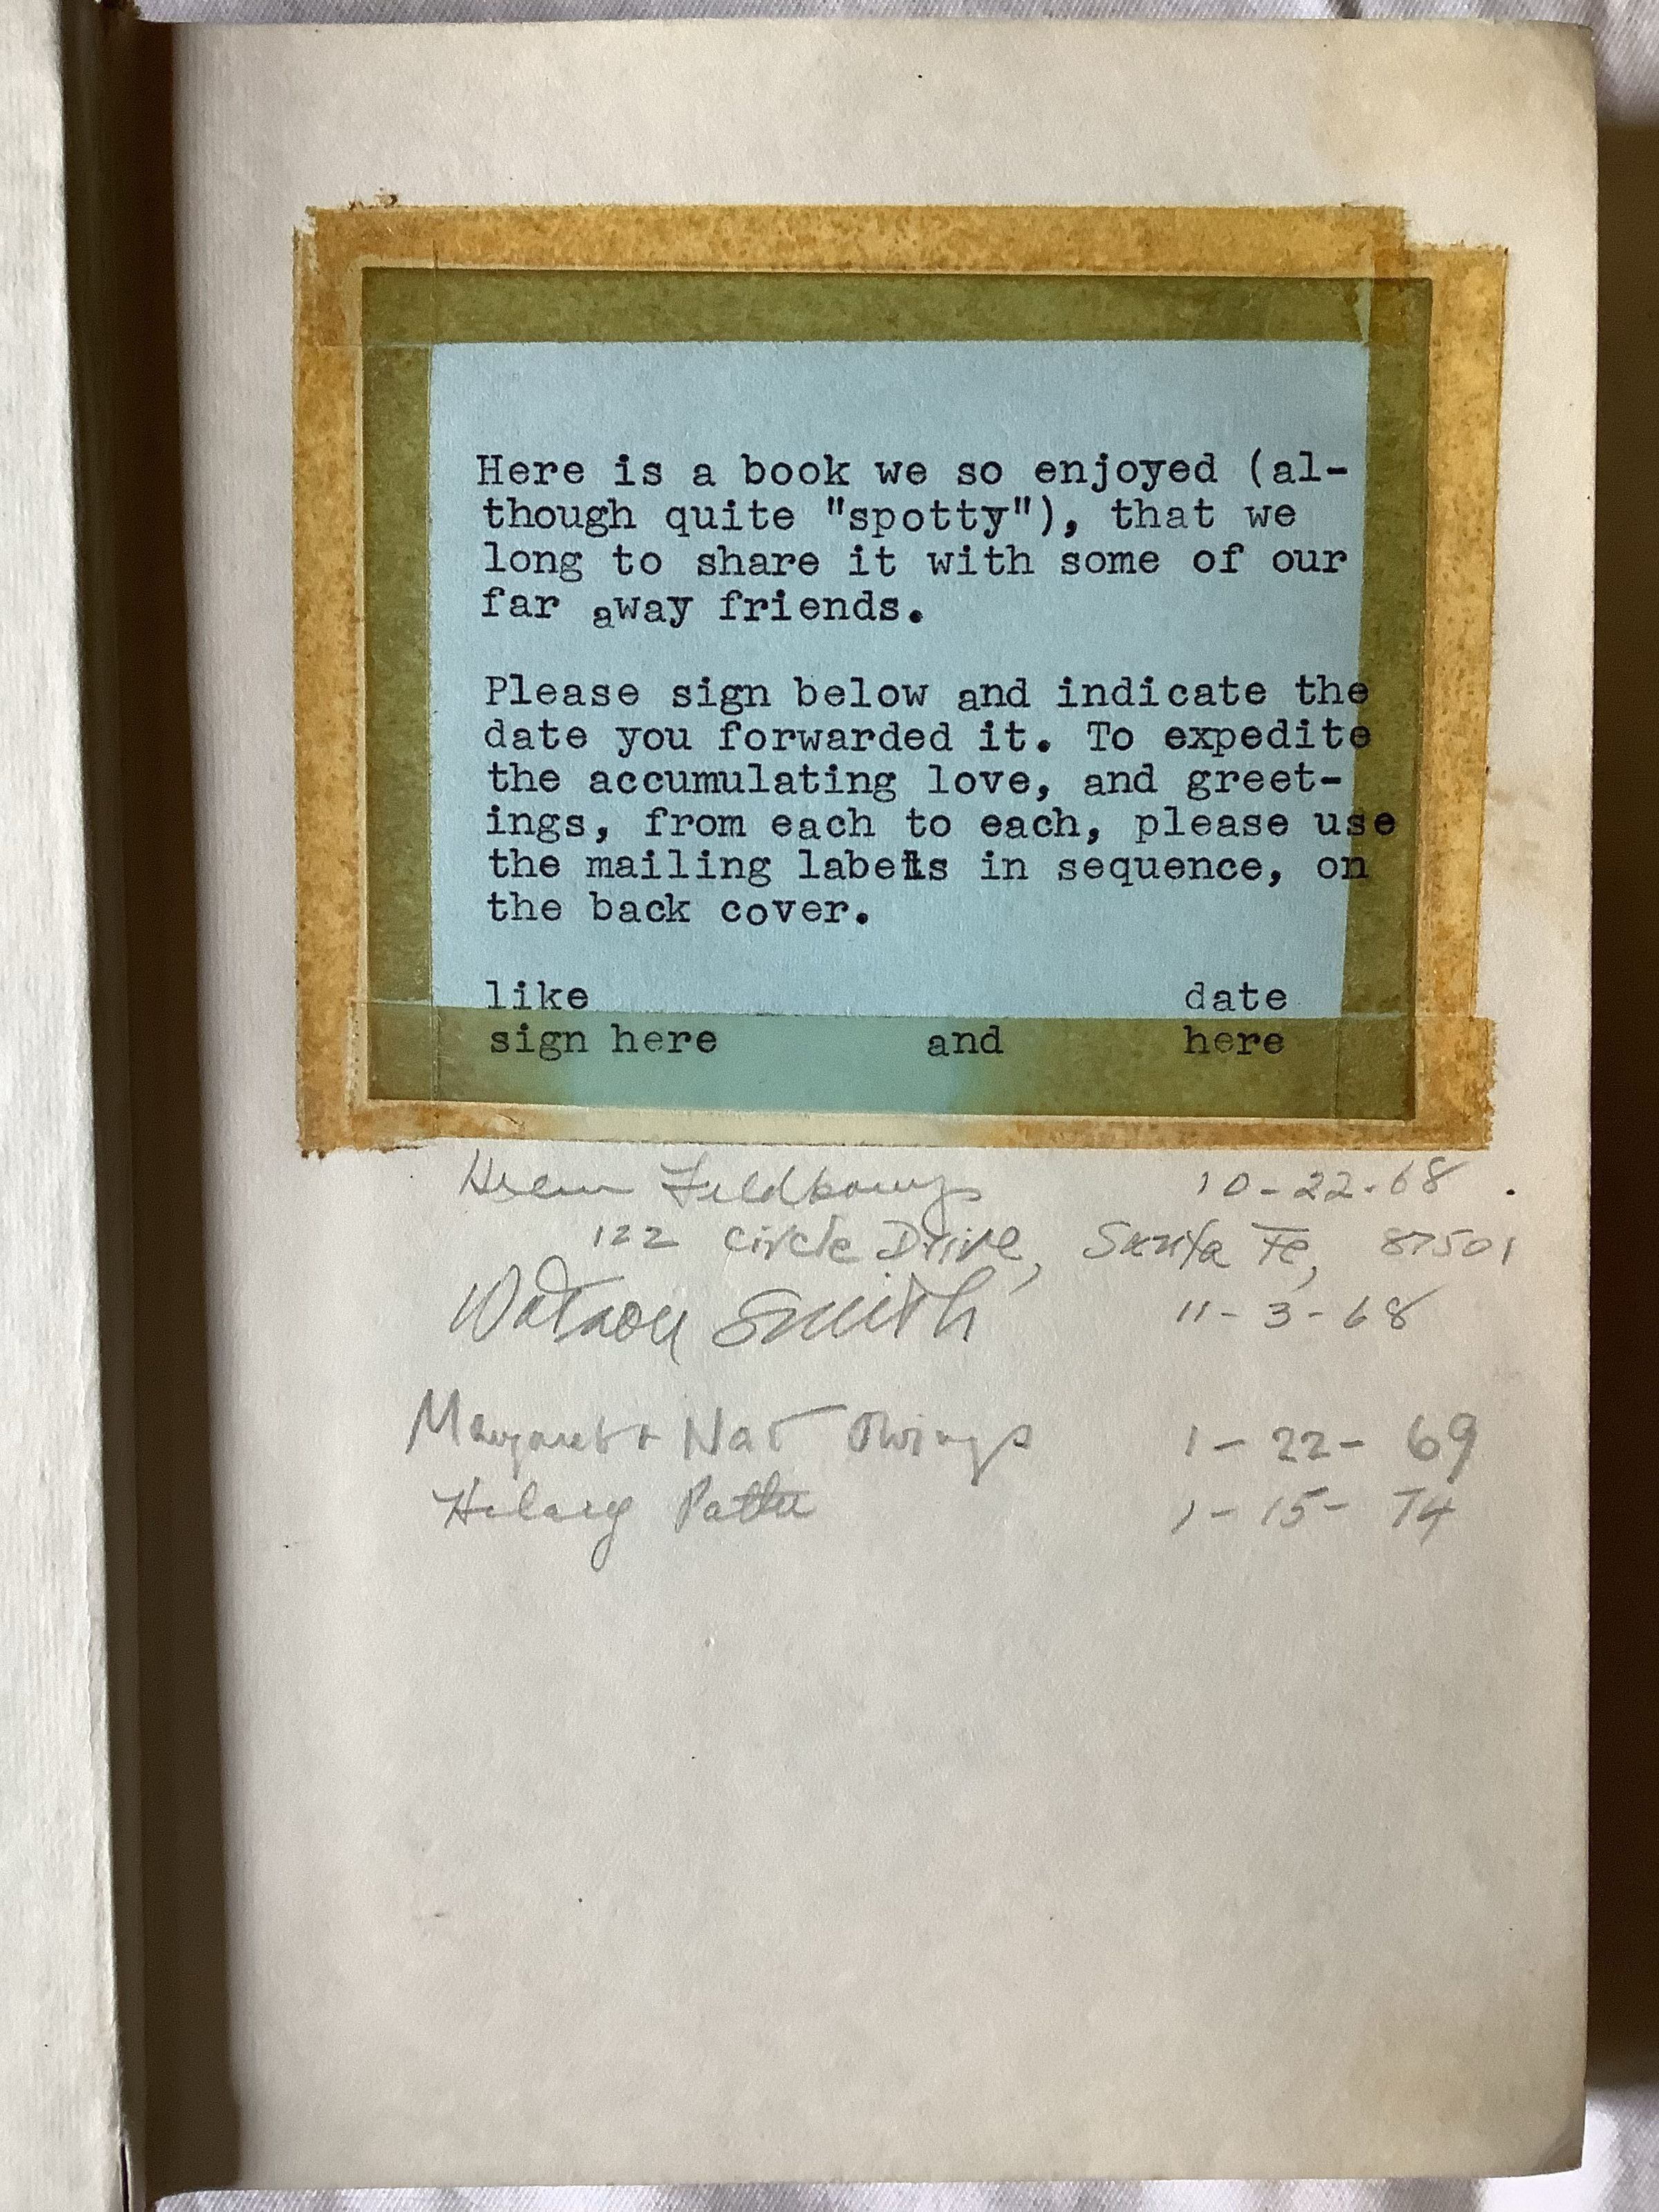 Here is a book we so enjoyed (al-
though quite "spotty"), that we
long to share it with some of our
far away friends.
Please sign below and indicate the
date you forwarded it. To expedite
the accumulating love, and greet-
ings, from each to each, please use
the mailing labels in sequence, on
the back cover.
like date
sign here and here
10-22-68
122 Circle Drive, Santa Fe, 87501
Watson Smith 11-3-68
Margaret + Nat Owings 1-22-69
Hilary 1-15-74